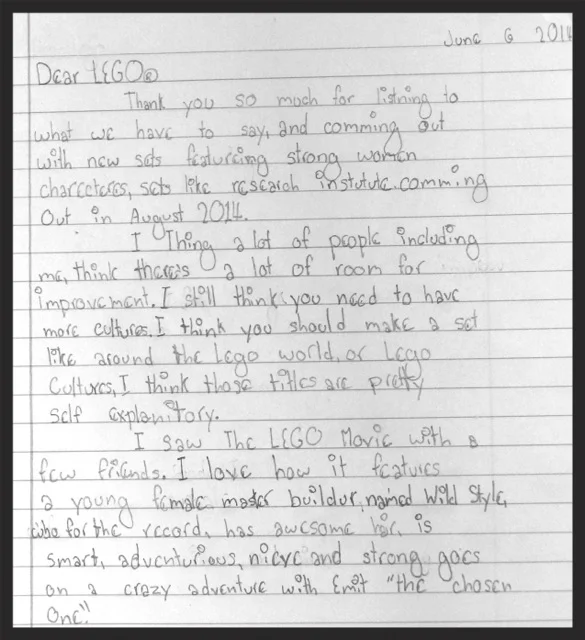 June 6 2014
Dear LEGO®
Thank you so much for listning to
what we have to say, and comming out
with new sets featureing strong women
charecteres, sets like research instutute comming
Out in August 2014.
I Thing a lot of people including
me, think theres a lot of room for
improvement. I still think you need to have
more cultures. I think you should make a set
like around the Lego world, or Lego
Cultures, I think those titles are pretty
self explanitory.
I saw The LEGO Movie with a
few friends. I love how it features
a young female master buildur, named Wild Style,
who for the record, has awesome hair, is
smart, adventurious, nicye and strong goes
on a crazy adventure with Emit "the chosen
One".